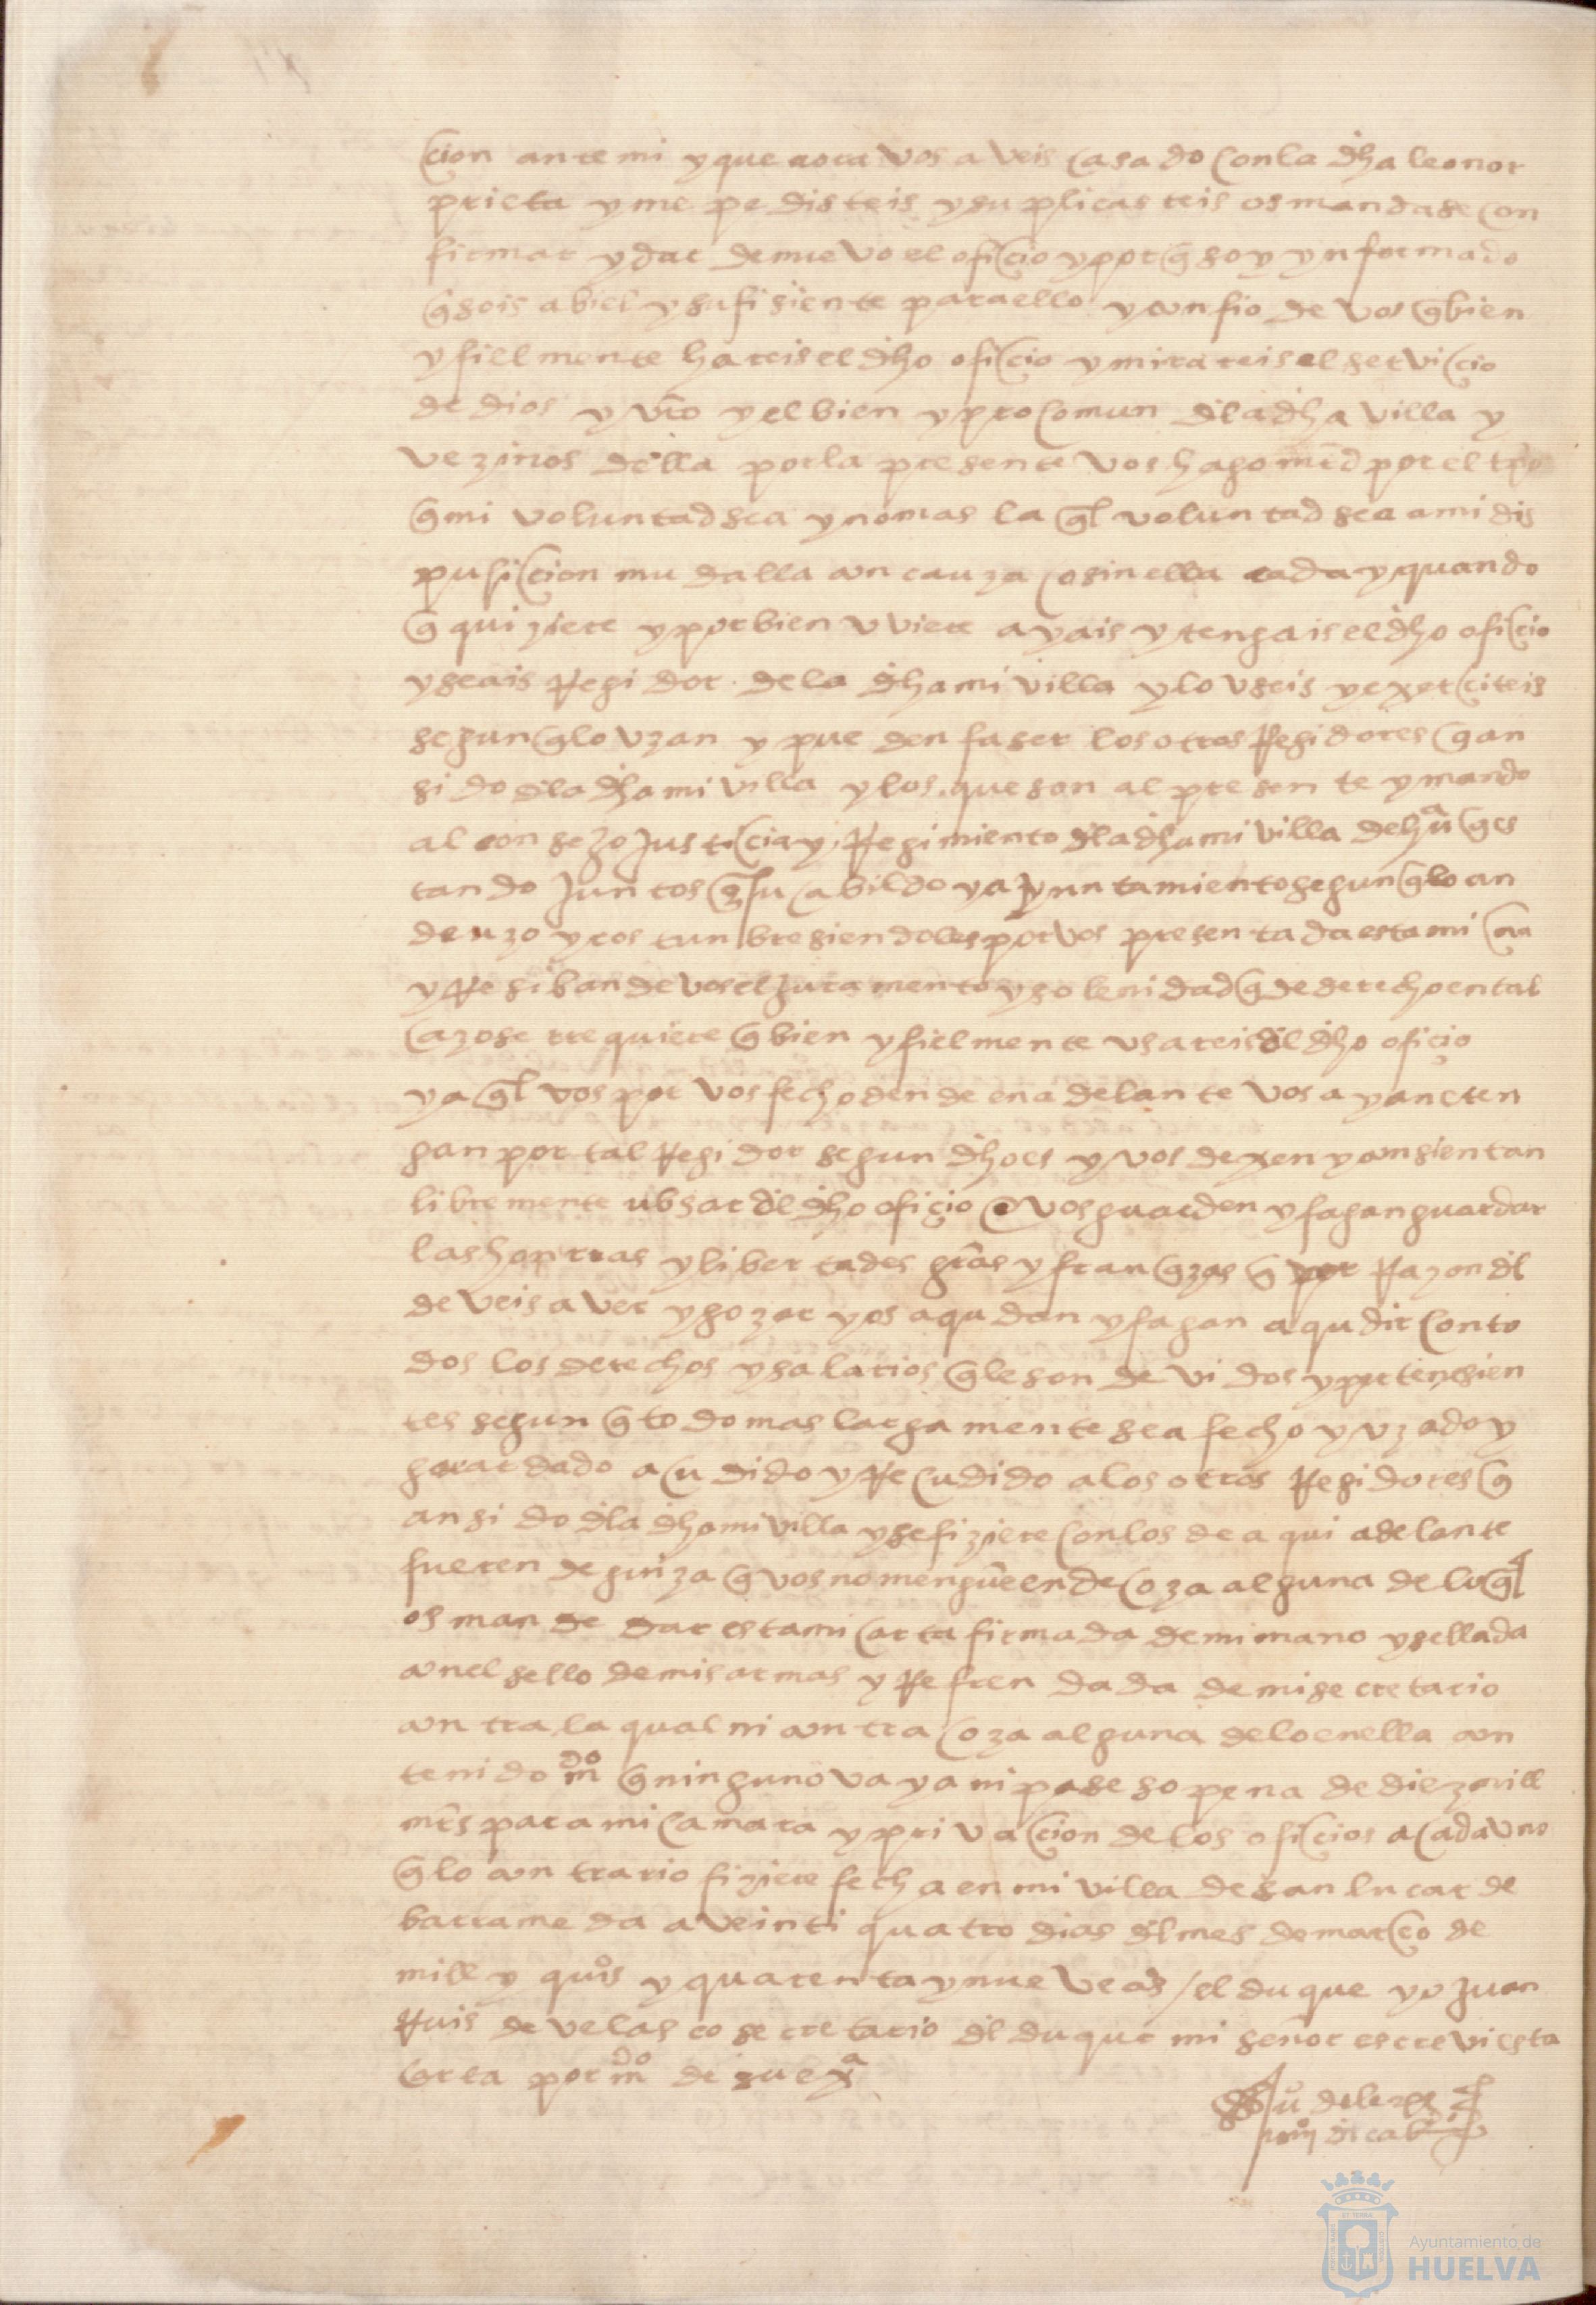 cion ante mi y que aora vos aveis casado con la dha leonor
prieta y me pedisteis y suplicasteis os mandase con
firmar y dar de nuevo el oficio y por q soy ynformado
q sois abiel y sufisiente para ello y confio de vos q bien
y fielmente hareis el dho oficio y mirareis el servicio
de dios y vro y el bien y procomun dla dha villa y
vezinos della por la presente vos hago md por el tpo
q mi voluntad sea y no mas la ql voluntad sea a mi dis
pusicion mudalla con cauza o sin ella cada y quando
q quiziere y por bien uviere ayais y tengais el dho oficio
y seais Regidor de la dha mi villa y lo useis y exerciteis
segun q lo uzan y pueden faser los otros Regidores q an
sido dla dha mi villa y los que son al presente y mando
al consejo justicia y Regimiento dla dha mi villa de hua q es
tando juntos su cabildo y ayuntamiento segun q lo an
de uzo y costunbre siendoles por vos presentada esta mi
y Resiban de vos el juramento y solenidad q de derecho en tal
cazo se rrequiere q bien y fielmente usareis dl dho ofiçio
y a ql vos por vos fecho dende en adelante vos ayan e ten
gan por tal Regidor segun dho es y vos dexen y consientan
libremente ubsar dl dho ofiçio e vos guarden y fagan guardar
las honrras y libertades gras y franqzas q por Razon dl
deveis aver y gozar y os aqudan y fagan aqudir con to
dos los derechos y salarios q le son devidos y pertenesien
tes segun q todo mas largamente sea fecho y uzado y
guardado acudido y Recudido a los otros Regidores q
an sido dla dha mi villa y se fiziere con los de aqui adelante
fueren de guiza q vos no mengue ende coza alguna de lo ql
os mande dar esta mi carta firmada de mi mano y sellada
con el sello de mis armas y Refrendada de mi secretario
contra la qual ni contra coza alguna de lo en ella con
tenido mdo q ninguno vaya ni pase so pena de diez mill
mrs para mi camara y privacion de los oficios a cada uno
q lo contrario fiziere fecha en mi villa de san lucar de
barrameda a veinti quatro dias dl mes de março de
mill y quis y quarenta y nueve as / el duque yo juan
Ruis de velasco secretario dl duque mi señor escrevi esta
carta por mdo de su exa
Ayuntamiento de
HUELVA